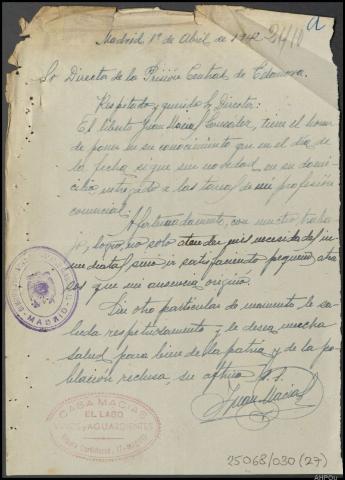 a
Madrid 1º de Abril de 1942
Sr Director de la Prisión Central de
Respetado y querido Sr Director:
El liberto Juan Macías González, tiene el honor
de poner en su conocimiento que en el día de
la fecha, sigue sin novedad, en su domi-
cilio, integrado a las tareas de su profesión
comercial.
Afortunadamente, con nuestro traba
jo, logro, no solo atender mis necesidades in
mediatas, sino ir satisfaciendo pequeños atra
sos que mi ausencia originó.
Sin otro particular de momento le sa-
luda respetuosamente y le desea mucha
salud para bien de la patria y de la po-
blación reclusa, su affmo S. S.
Juan Macías
MADRID
CASA MACIAS
EL LAGO
VINOS Y AGUARDIENTES
25068/030 (27)
AHPOu